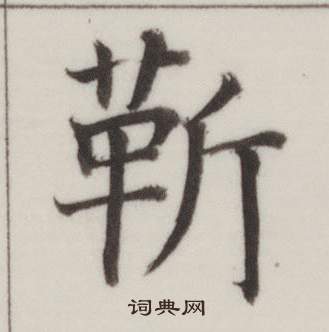 靳
词典网